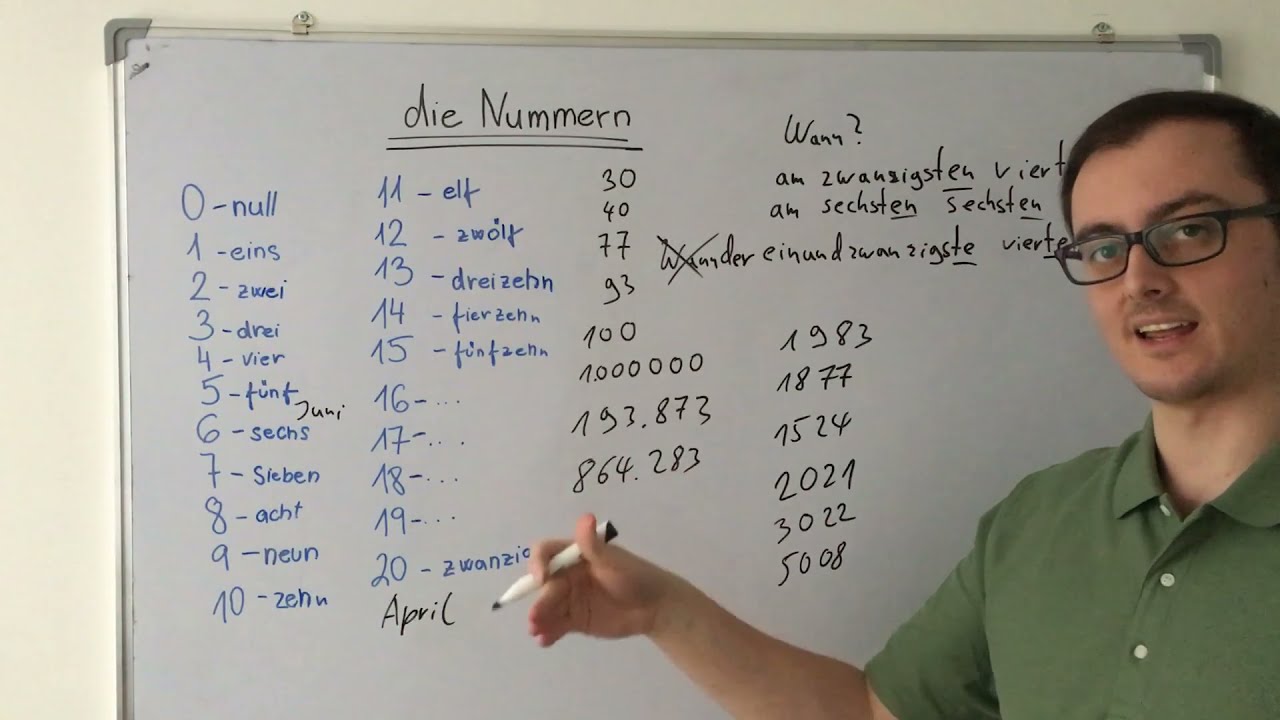 die Nummern
0 - null
1 - eins
2 - zwei
3 - drei
4 - vier
5 - fünf
Juni
6 - sechs
7 - Sieben
8 - acht
9 - neun
10 - zehn
11 - elf
12 - zwölf
13 - dreizehn
14 - fierzehn
15 - fünfzehn
16 - ...
17 - ...
18 - ...
19 - ...
20 - zwanzig
April
30
40
77
93
100
1.000000
193.873
864.283
Wann?
am zwanzigsten viert
am sechsten sechsten
der einundzwanzigste vierte
1983
1877
1524
2021
3022
5008